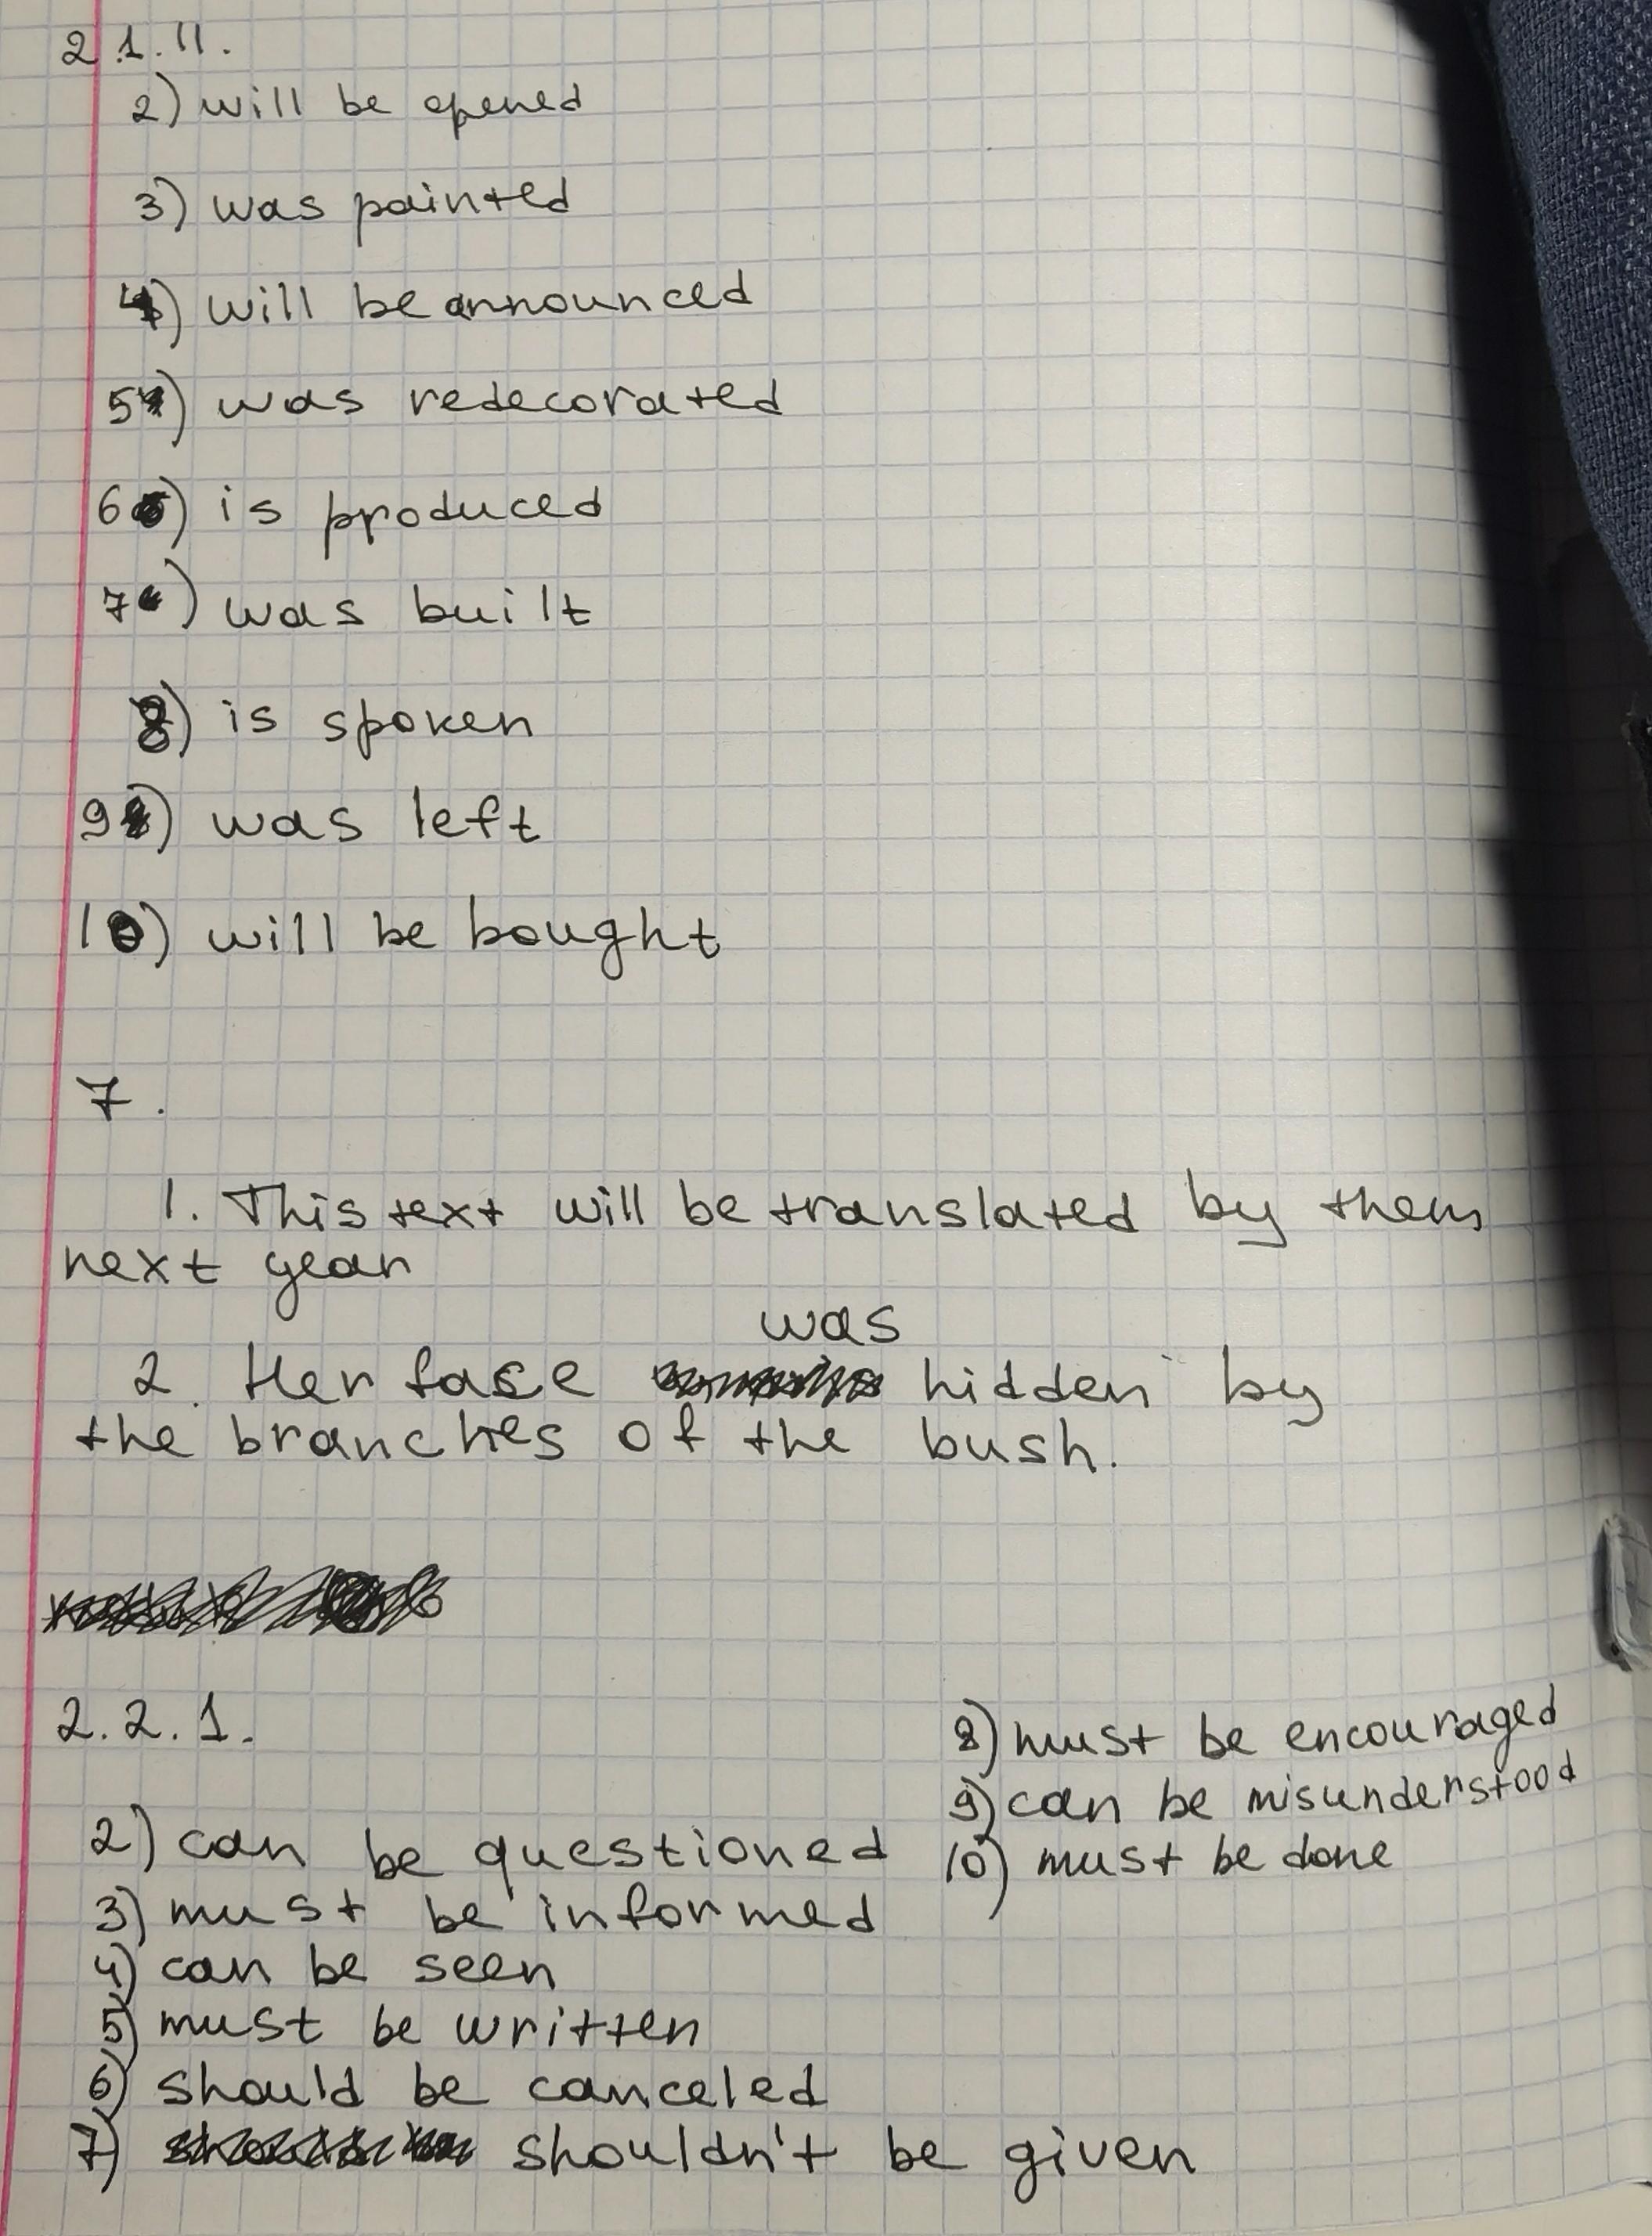 2.1.11.
2) will be opened
3) was painted
4) will be announced
5) was redecorated
6) is produced
7) was built
8) is spoken
9) was left
10) will be bought
7.
1. This text will be translated by them
next year
was
2. Her face hidden by
the branches of the bush.
2.2.1.
2) can be questioned
3) must be informed
4) can be seen
5) must be written
6) should be canceled
7) shouldn't be given
8) must be encouraged
9) can be misunderstood
10) must be done